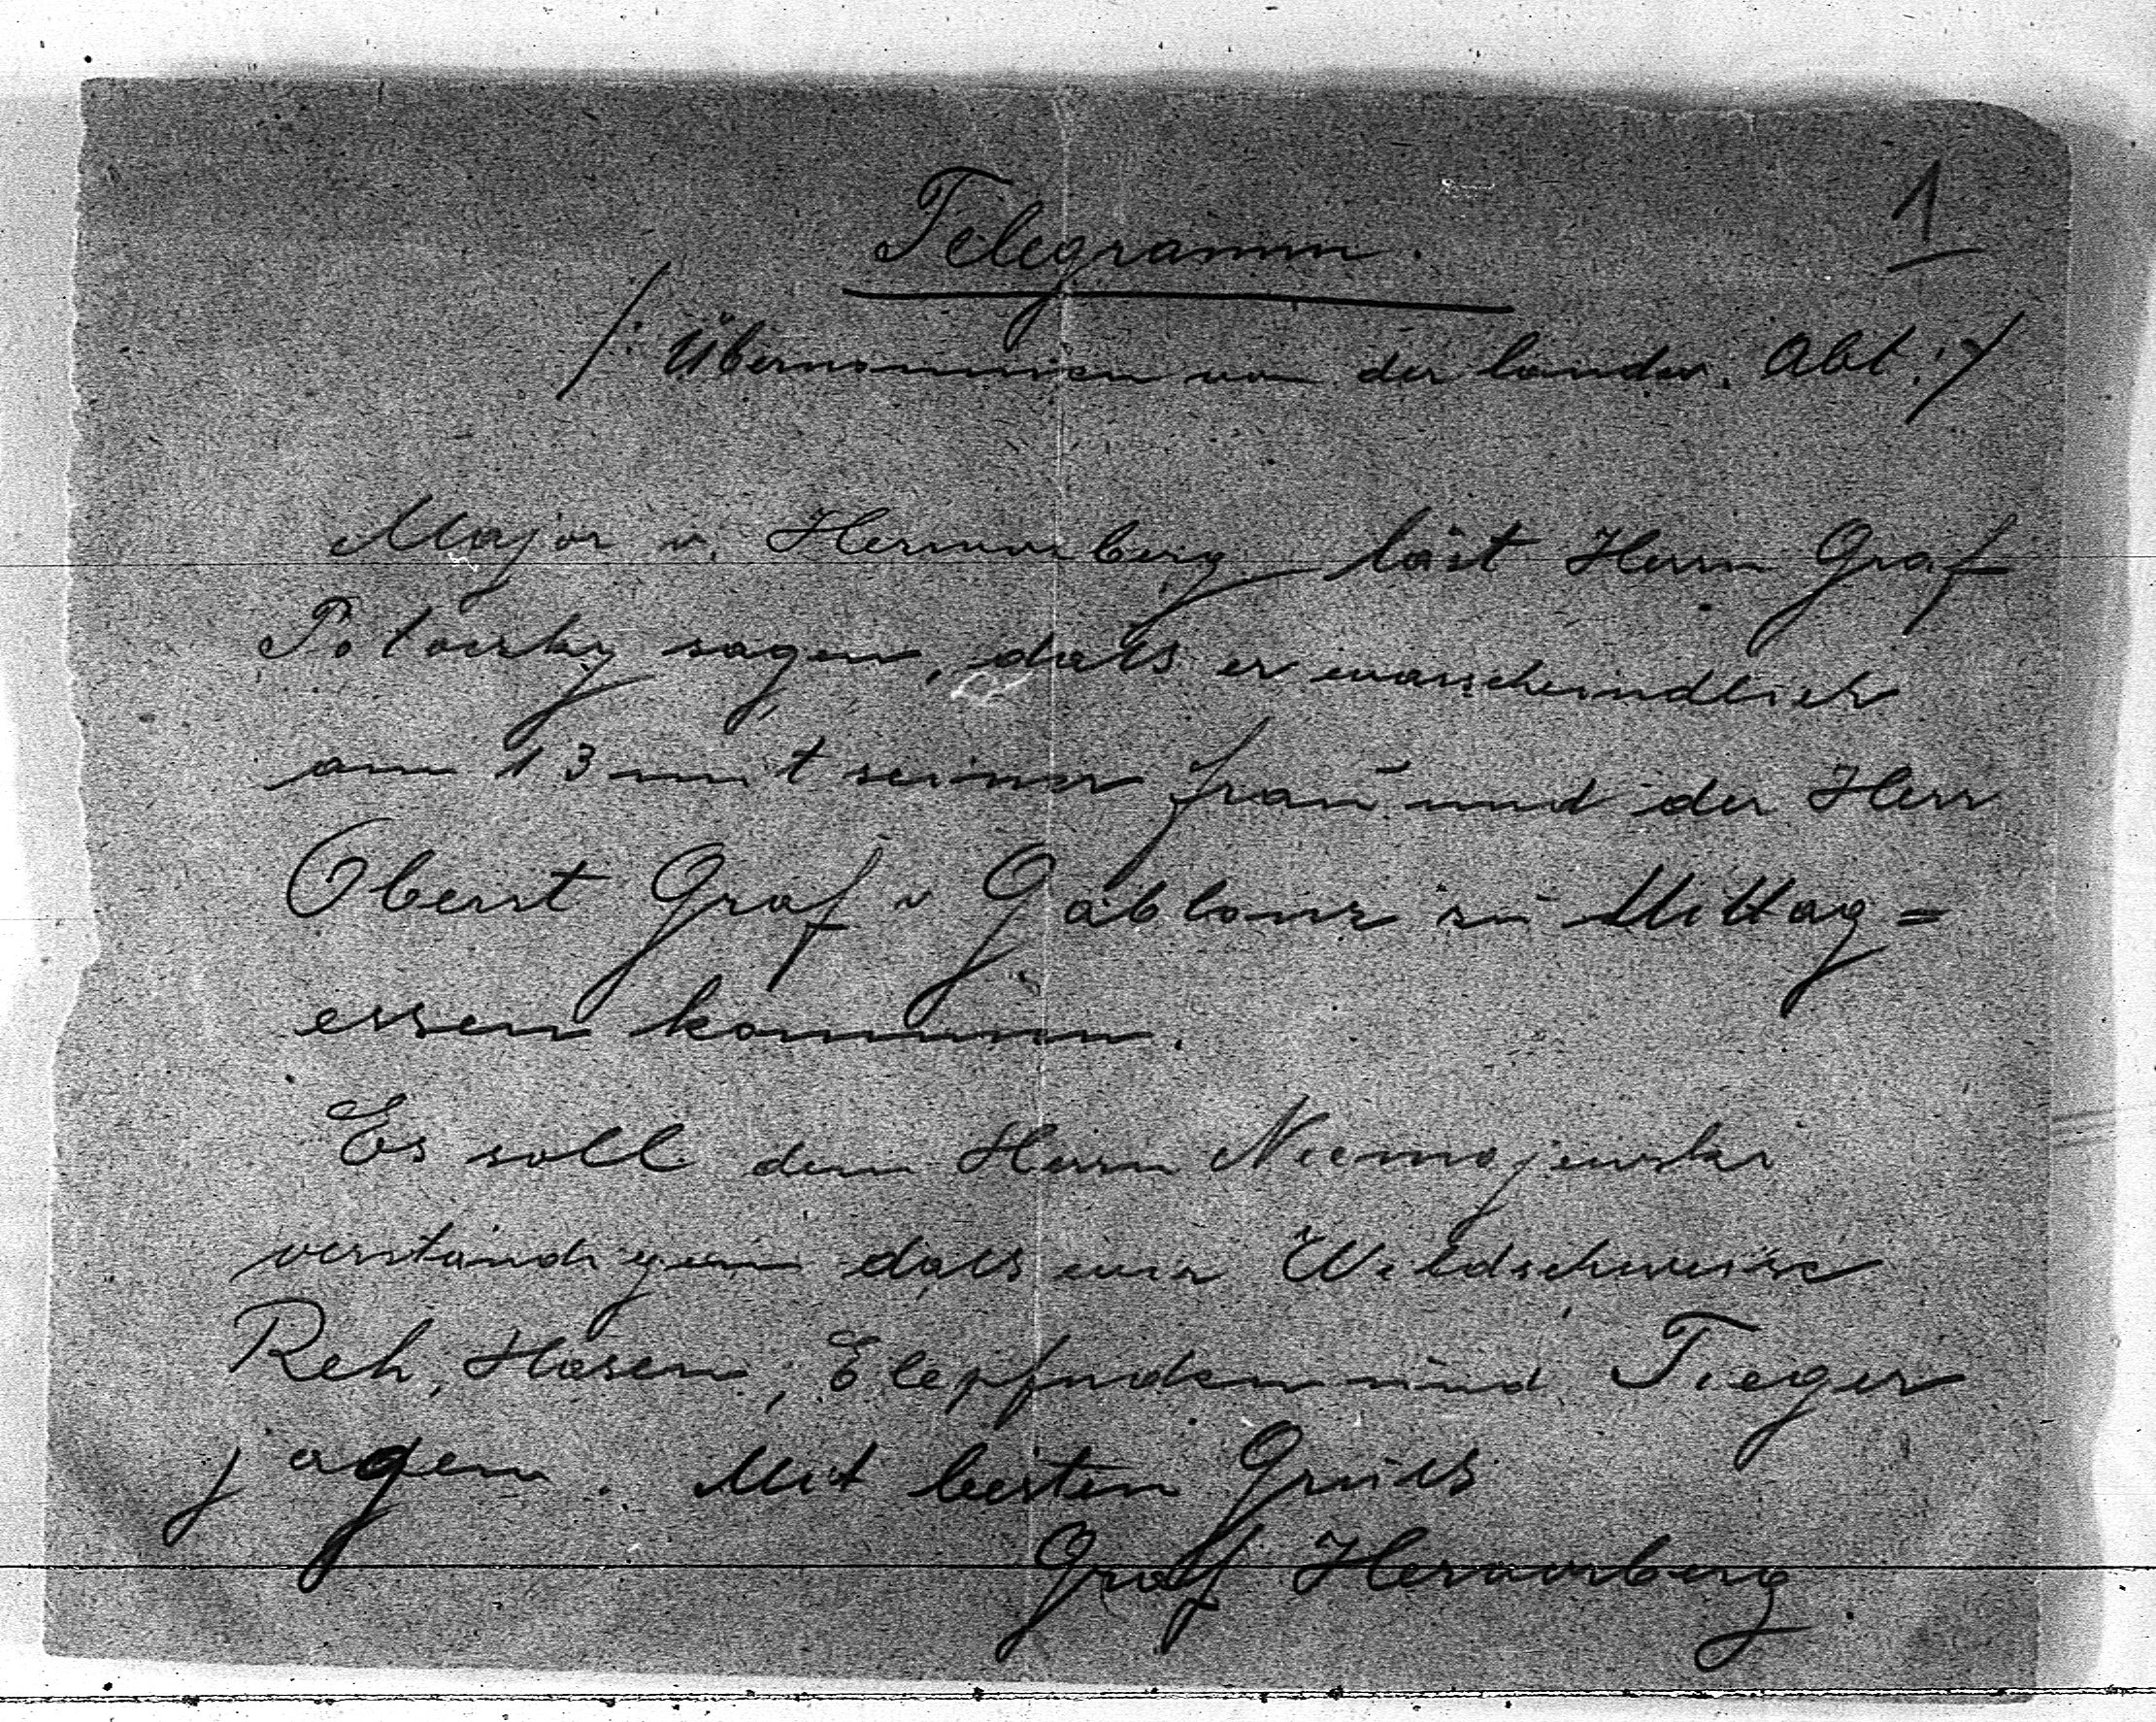 Telegramm.
1
/: Übernommen von der landw. Abt. :/
Major v. Hervorberg läst Herrn Graf
Potoczky sagen, dass er warscheindlich
am 13 mit seiner frau und der Herr
Oberst Graf v Gablonz zu Mittag=
essen kommen.
Es soll dem Herrn Niemojewski
verständigen dass wir Wildschweine
Reh, Hasen, Elepfnden und Tieger
jagen. Mit besten Gruss
Graf Hervorberg.